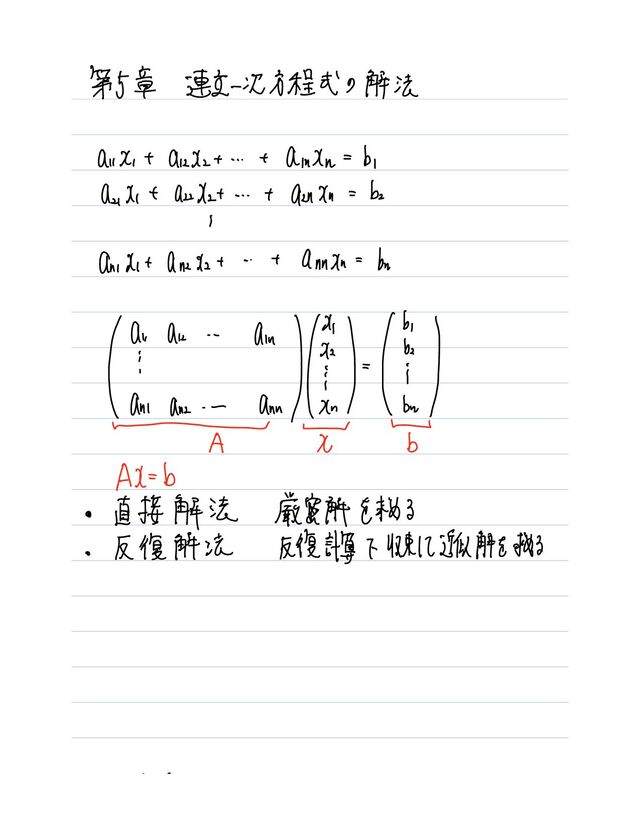 第5章 連立一次方程式の解法
a₁₁x₁ + a₁₂x₂ + … + a₁ₙxₙ = b₁
a₂₁x₁ + a₂₂x₂ + … + a₂ₙxₙ = b₂
⋮
aₙ₁x₁ + aₙ₂x₂ + … + aₙₙxₙ = bₙ
(a₁₁ a₁₂ … a₁ₙ) (x₁) = (b₁)
⋮ x₂ b₂
⋮ ⋮
(aₙ₁ aₙ₂ … aₙₙ) (xₙ) (bₙ)
A x b
Ax=b
・直接解法 厳密解を求める
・反復解法 反復計算で収束して近似解を求める